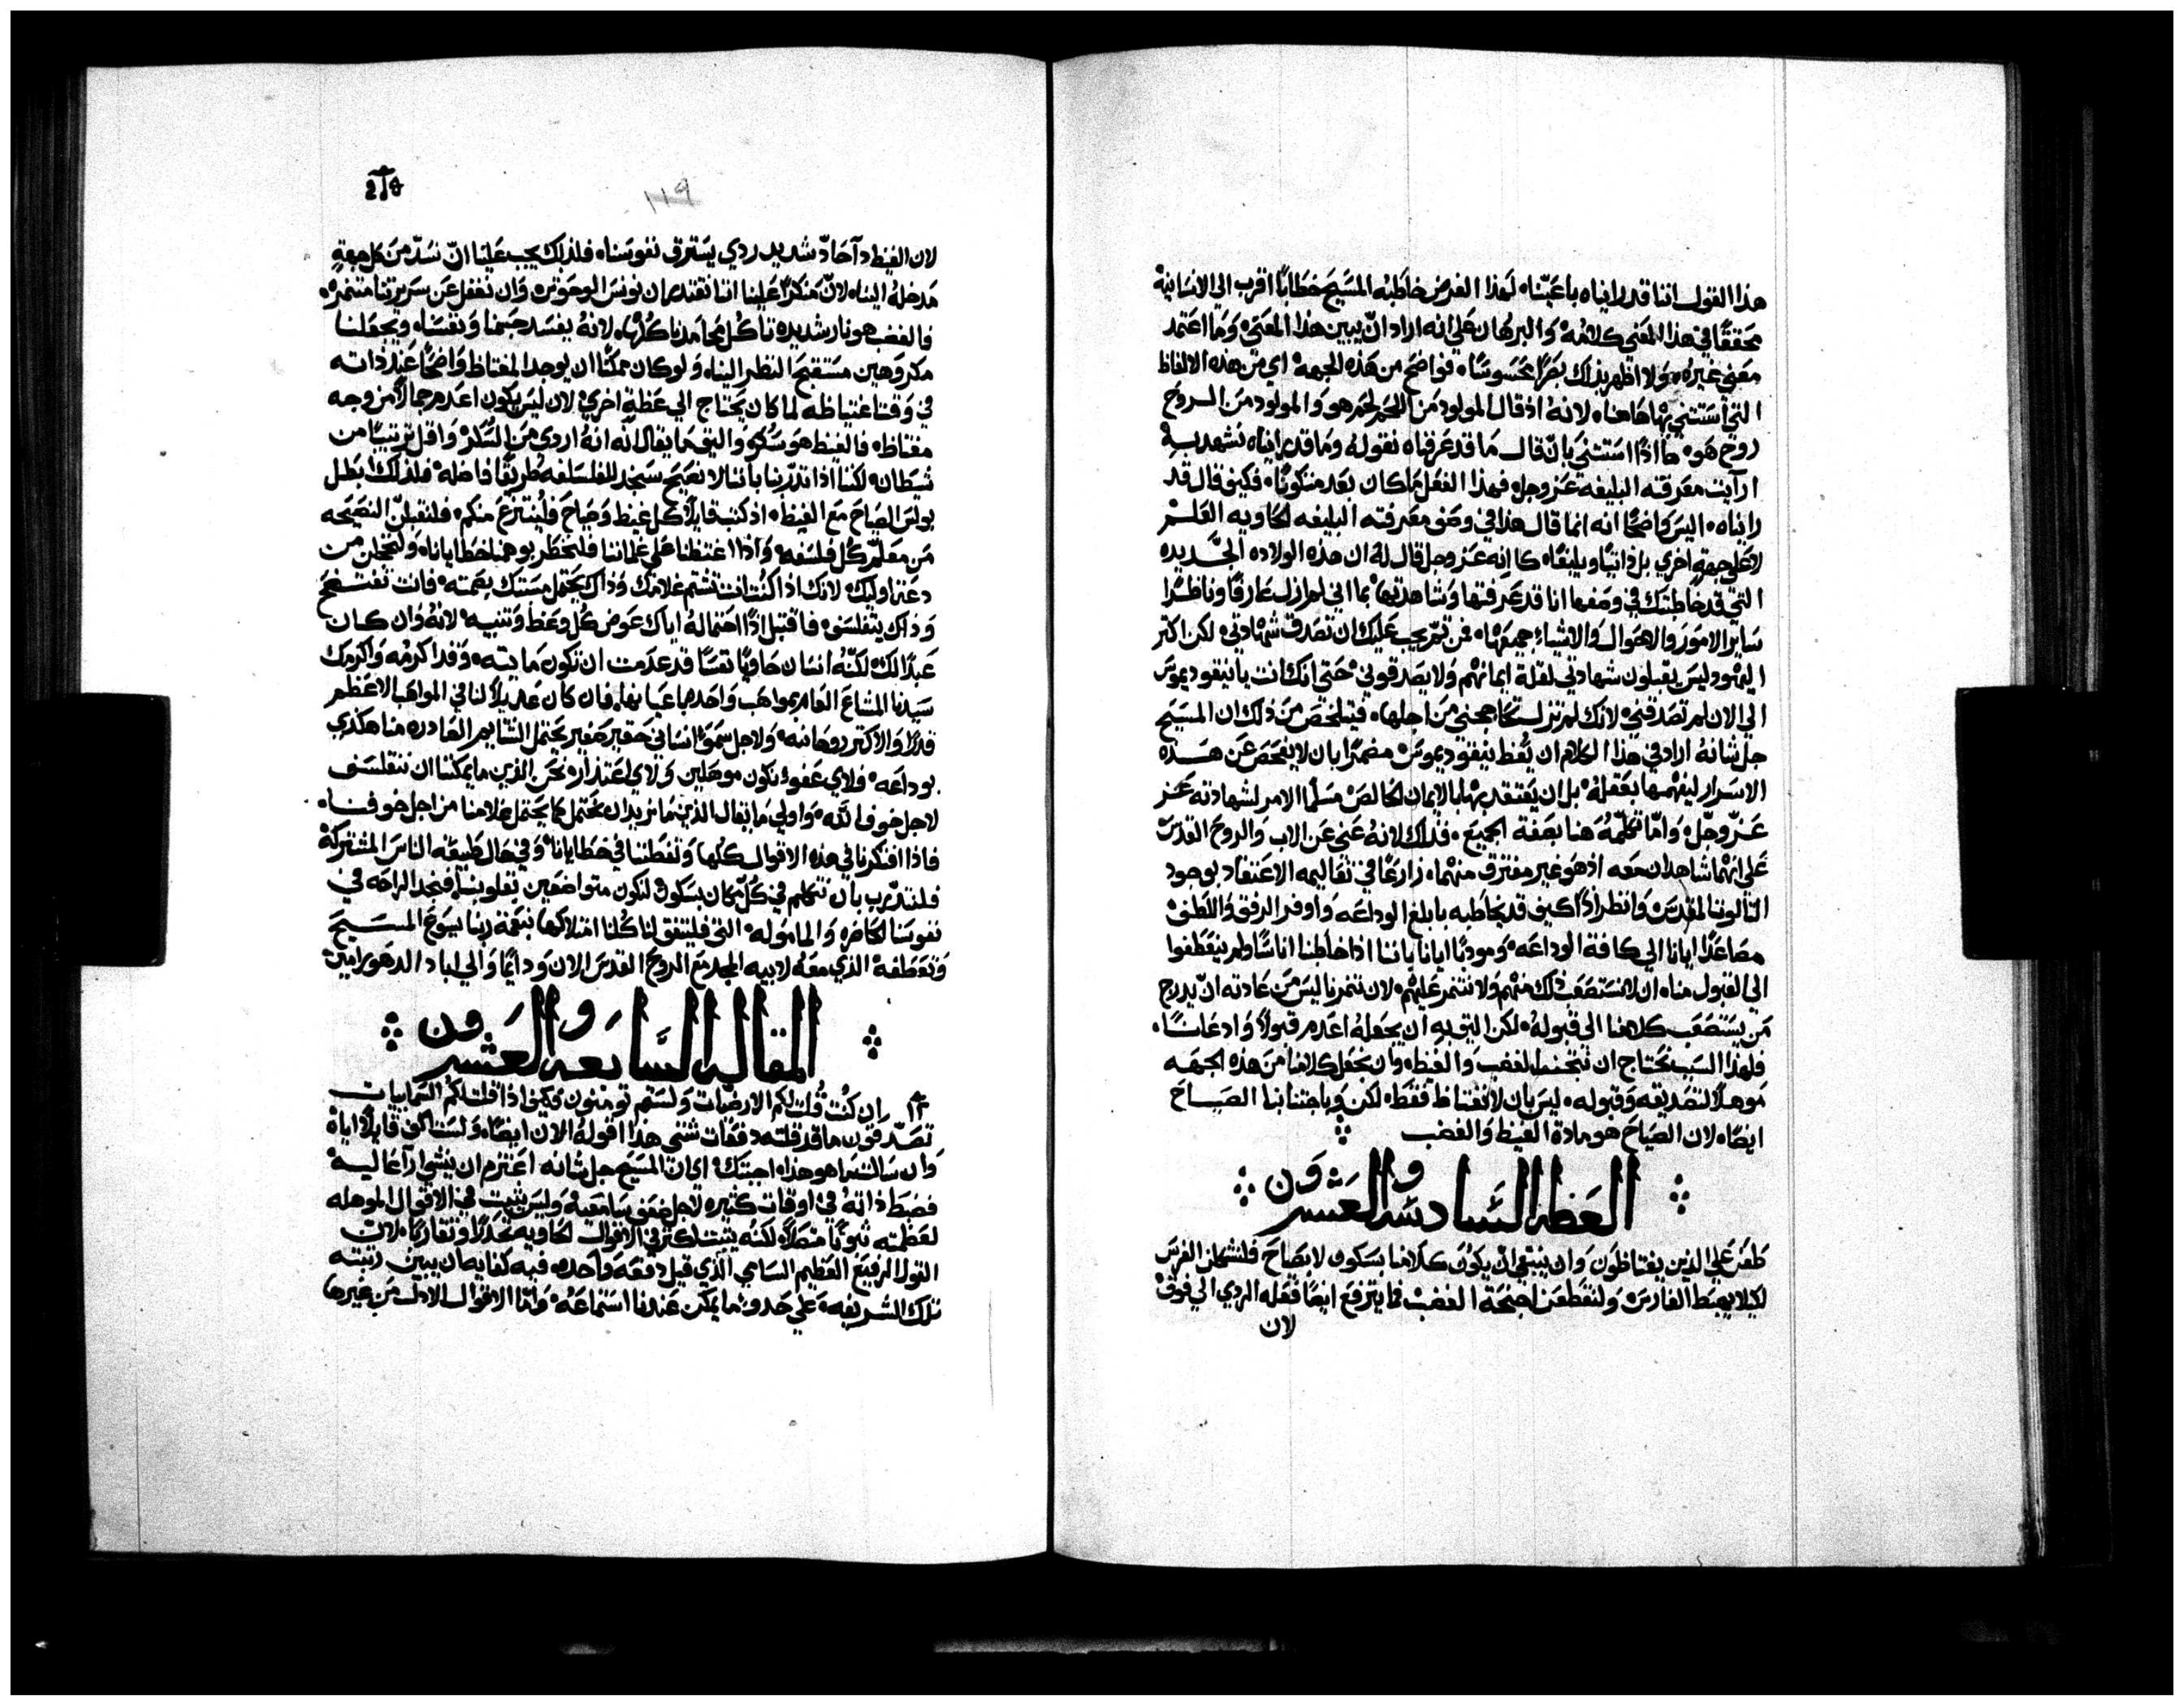 هذا القول اننا قد راينا باعيننا لهذا الغرض خاطبه المسيح خطابا اقرب الي الانسانية
محققا في هذا المعني كلامه والبرهان علي انه اراد ان يبين هذا المعني وما اعتمد
معني غيره ولا اظهر بذلك بصرا محسوسا فواضح من هذه الجهة اي من هذه الالفاظ
التي استثني بها هاهنا لانه اذ قال المولود من اللحم لحم هو والمولود من الروح
روح هو استثني بان قال ما قد عرفناه نقوله وما قد رايناه نشهد به
ارايت معرفته البليغه عز وجل فهذا الفعل ما كان بعد متكونا فكيف قال قد
رايناه اليس واضحا انه انما قال هذا في وصف معرفته البليغه الحاويه العلم
لا علي جهة اخري بل ذاتيا وبليغا كانه عز وجل قال له ان هذه الولاده الجديده
التي قد خاطبتك في وصفها انا قد عرفتها وشاهدتها بما اني لم ازل عارفا وناظرا
ساير الامور والاحوال والاشاء جميعها فمن ثم يجب عليك ان تصدق شهادتي لكن اكتر
اليهود ليس يقبلون شهادتي لقلة ايمانهم ولا يصدقوني حتي انك انت يا نيقوديموس
الي الان لم تصدقني لانك لم تزل تحاججني من اجلها فيتلخص من ذلك ان المسيح
جل شانه اراد في هذا الكلام ان يعظ نيقوديموس مضمرا بان لا يفحص عن هذه
الاسرار ليفهمها بعقله بل ان يعتقد بها بالايمان الخالص مسلما الامر لشهادته عز
عز وجل واما تكلمه هنا بصفة الجميع فذلك لانه عني عن الاب والروح القدس
علي انهما شاهدان معه اذ هو غير مفترق منهما زارعا في تعاليمه الاعتقاد بوجود
التالوث المقدس وانظر اذا كيف قد يخاطبه بابلغ الوداعه واوفر الرفق واللطف
مصاعدا ايانا الي كافة الوداعه ومودبا ايانا باننا اذا خاطبنا اناسا ولم ينعطفوا
الي القبول منا ان لا نستصعب ذلك منهم ولا نتنمر عليهم لان تنمرنا ليس من عادته ان يدرج
من يستصعب كلامنا الي قبوله لكن اليق به ان يجعله اعدم قبولا واذعانا
فلهذا السبب نحتاج ان نتجنب الغضب والغيظ وان نجعل كلامنا من هذه الجهه
موهلا لتصديقه وقبوله ليس بان لا نغتاظ فقط لكن وباجتنابنا الصياح
ايضا لان الصياح هو مادة الغيظ والغضب
العظه السادسه والعشرون
طعن علي الذين يغتاظون وان ينبغي ان يكون كلامنا بسكون لا بصياح فلنشكلن الفرس
لكيلا يهبط الفارس ولنقطعن اجنحة الغضب فما يترفع ايضا فعله الردي الي فوق
لان
١١٩
لان الغيظ دآ حاد شديد ردي يسترق نفوسنا فلذلك يجب علينا ان نسد من كل جهة
مدخله الينا لان منكرا علينا اننا نقتدر ان نونس الوحوش وان نغفل عن سريرتنا متنمره
فالغضب هو نار شديده تاكل محامدنا كلها لانه يفسد جسمنا ونفسنا ويجعلنا
مكروهين مستقبح النظر الينا ولو كان ممكنا ان يوجد المغتاظ واضحا عند ذاته
في وقت اغتياظه لما كان يحتاج الي عظة اخري لان ليس يكون اعدم جمالا من وجه
مغتاظ فالغيظ هو سكر واليق ما يقال انه اردي من السكر واقل ترتيبا من
شيطان لكننا اذا تدربنا باننا لا نصيح سنجد للفلسفه طريقا فاضله فلذلك ابطل
بولس الصياح مع الغيظ اذ كتب قايلا كل غيظ وصياح فلينتزع منكم فلنقبلن النصيحه
من معلم كل فلسفه واذا اغتظنا علي غلماننا فلنخطر بوهمنا خطايانا ولنخجلن من
دعة اوليك لانك اذا كنت انت تشتم غلامك وذاك يحتمل مستك بصمته فانت تفتضح
وذاك يتفلسف فاقتبل اذا احتماله اياك عوض كل وعظ وتنبيه لانه وان كان
عبدا لك لكنه انسان حاويا نفسا قد عدمت ان تكون مايته وقد اكرمه واكرمك
سيدنا المشاع العام بمواهب واحده باعيانها فان كان عديلا لنا في المواهب الاعظم
قدرا والاكتر روحانيه ولاجل سمو انساني حقير صغير يحتمل الشتايم الصادره منا هكذي
بوداعه فلاي عفو نكون موهلين ولاي اعتذار نحن الذين ما يمكننا ان نتفلسف
لاجل خوف الله واولي ما يقال الذين ما نريد ان نحتمل كما يحتمل غلامنا من اجل خوفنا
فاذا افتكرنا في هذه الاقوال كلها ولفظتنا في خطايانا وفي حال طبيعة الناس المشتركة
فلنتدرب بان نتكلم في كل مكان بسكون لنكون متواضعين بقلوبنا فنجد الراحه في
نفوسنا الحاضره والماموله التي فليتفق لنا كلنا امتلاكها بنعمة ربنا يسوع المسيح
وتعطفه الذي معه لابيه المجد مع الروح القدس الان ودايما والي اباد الدهور امين
المقاله السابعه والعشرون
ان كنت قلت لكم الارضيات ولستم تومنون فكيف اذا قلت لكم السمايات
تصدقون ما قد قلته دفعات شتي هذا اقوله الان ايضا ولست اكف قايلا اياه
وان سالت ما هو هذا اجبتك اي ان المسيح جل شانه اعتزم ان ينشي ارآ عاليه
فضبط ذاته في اوقات كثيره لاجل ضعف سامعيه وليس يثبت في الاقوال الموهله
لعظمته ثبوتا متصلا لكنه يثبت اكتر في الاقوال الحاويه تحدلا وتقاربا لان
القول الرفيع العظيم السامي الذي قيل دفعه واحده فيه كفايه ان يبين رتبته
تلك الشريفه علي حدو ما يمكن عندنا استماعه واما الاقوال الادل من غيرها